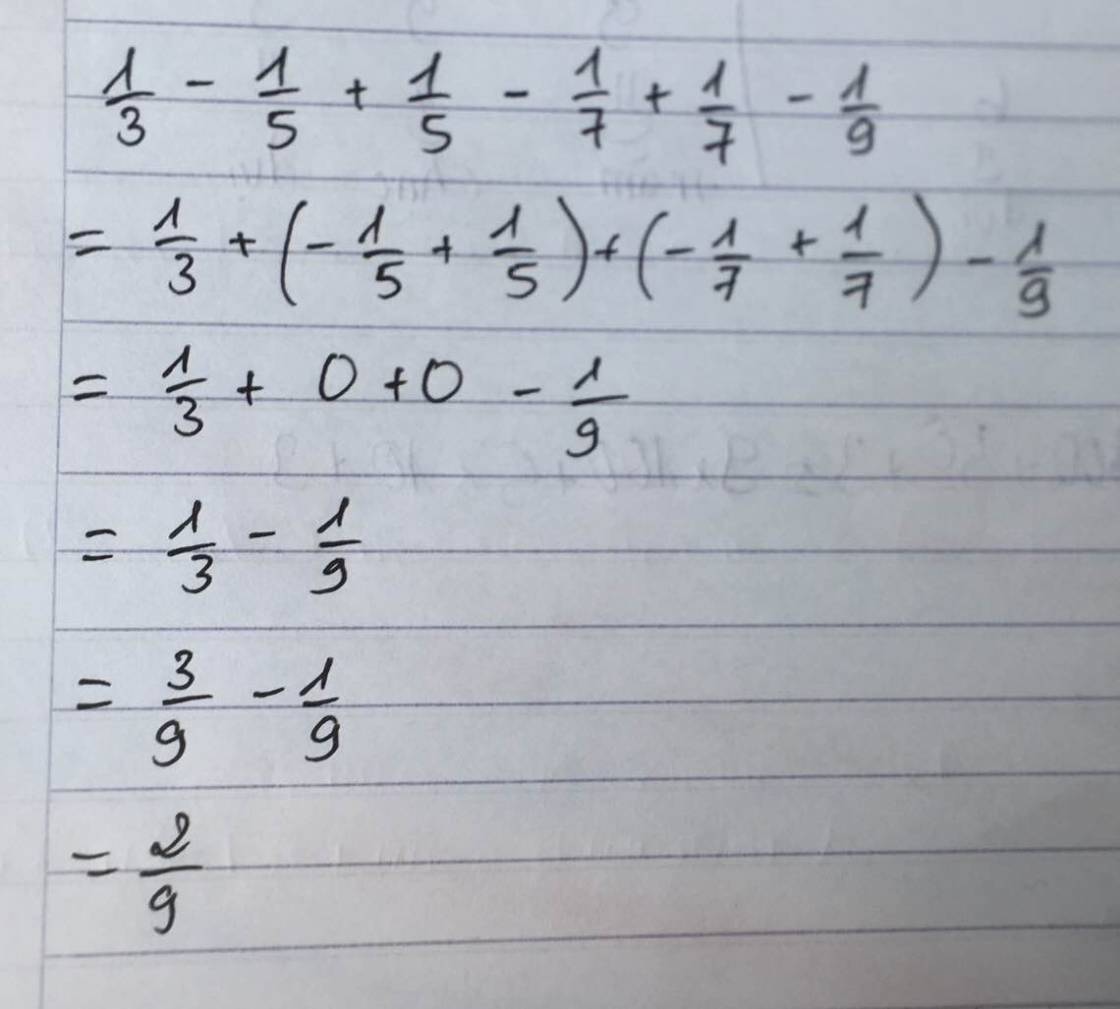 1/3 - 1/5 + 1/5 - 1/7 + 1/7 - 1/9
= 1/3 + (- 1/5 + 1/5) + (- 1/7 + 1/7) - 1/9
= 1/3 + 0 + 0 - 1/9
= 1/3 - 1/9
= 3/9 - 1/9
= 2/9